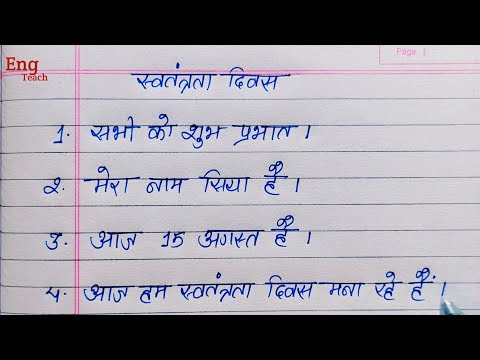 Eng
Teach
Page
स्वतंत्रता दिवस
१. सभी को शुभ प्रभात ।
२. मेरा नाम सिया है ।
३. आज 15 अगस्त है ।
४. आज हम स्वतंत्रता दिवस मना रहे हैं ।